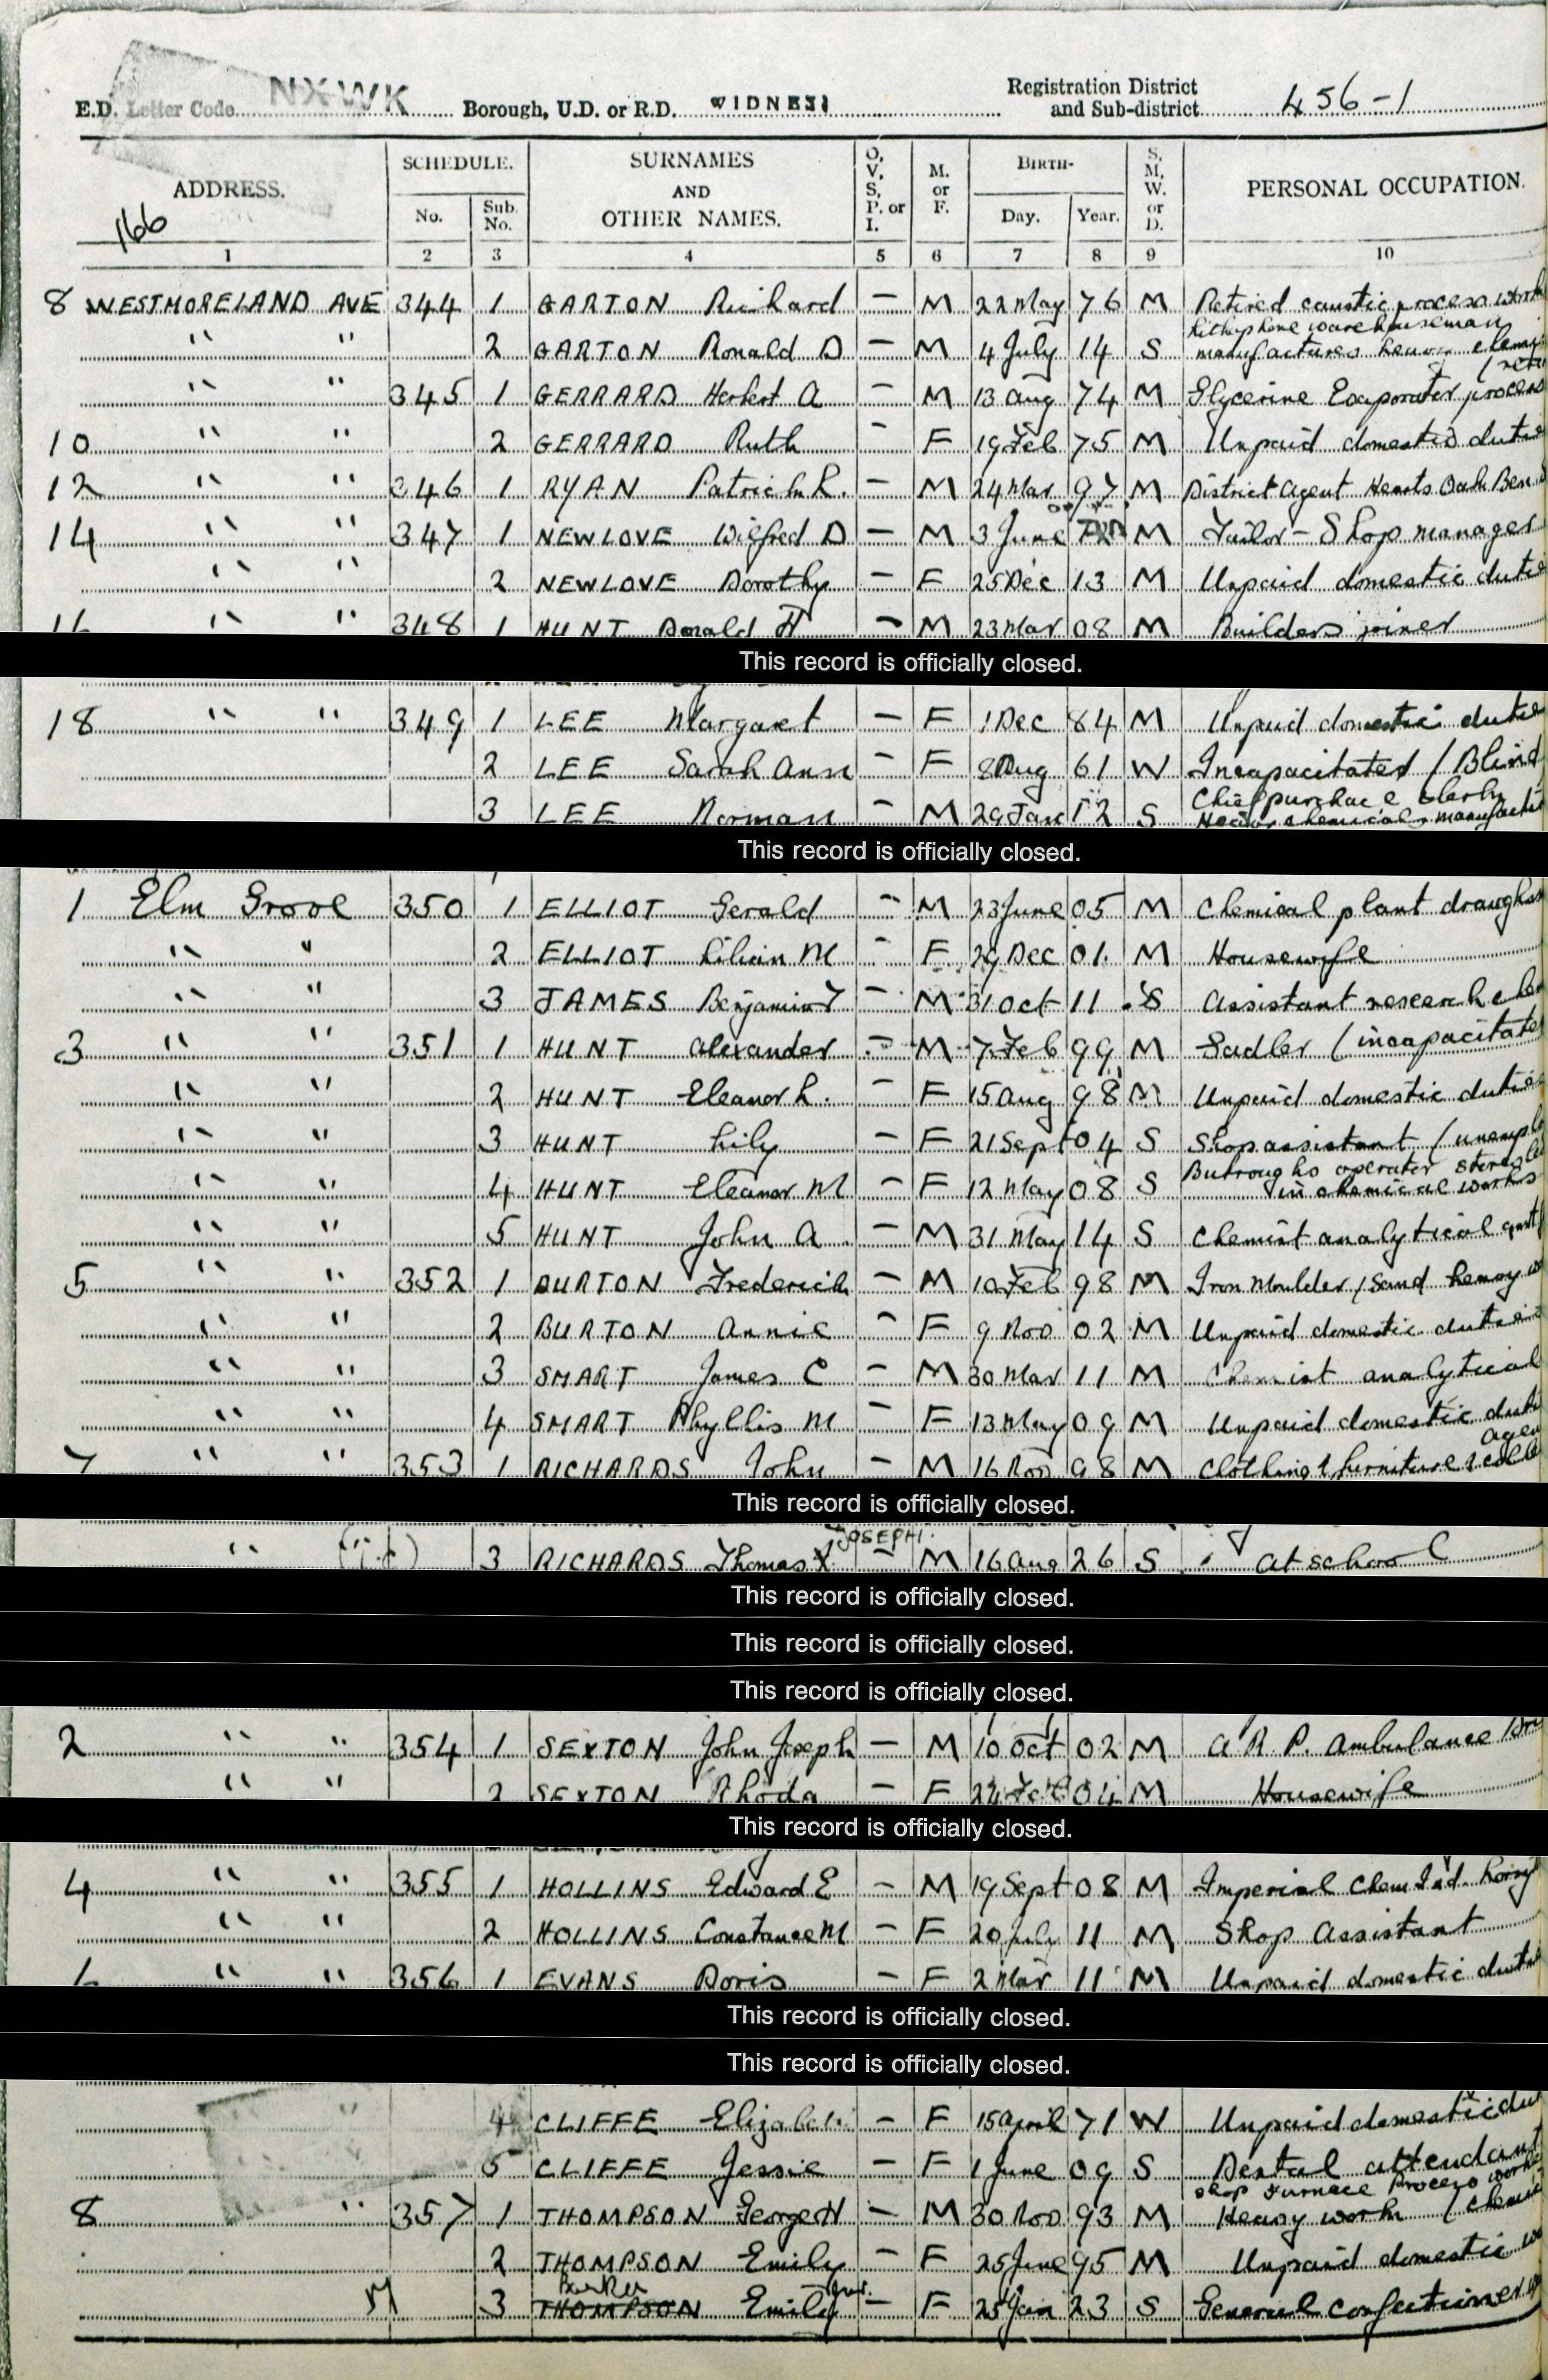 E.D. Letter Code NX-WK Borough, U.D. or R.D. WIDNES Registration District and Sub-district 456-1
ADDRESS. SCHEDULE. No. Sub. No. SURNAMES AND OTHER NAMES. O, V, S, P. or I. M. or F. BIRTH- Day. Year. S, M, W. or D. PERSONAL OCCUPATION.
166
1 2 3 4 5 6 7 8 9 10
8 WESTMORELAND AVE 344 1 GARTON Richard — M 22 May 76 M Retired caustic process work
" " 2 GARTON Ronald D — M 4 July 14 S warehouseman manufactures heavy
" " 345 1 GERRARD Herbert A — M 13 Aug 74 M Glycerine Evaporater process
10 " " 2 GERRARD Ruth — F 19 Feb 75 M Unpaid domestic dutie
12 " " 346 1 RYAN Patrick L. — M 24 Mar 97 M District Agent Hearts Oak Ben
14 " " 347 1 NEWLOVE Wilfred D — M 3 June M Tailor - Shop manager
" " 2 NEWLOVE Dorothy — F 25 Dec 13 M Unpaid domestic dutie
16 " " 348 1 HUNT Donald H — M 23 Mar 08 M Builders joiner
This record is officially closed.
18 " " 349 1 LEE Margaret — F 1 Dec 84 M Unpaid domestic dutie
2 LEE Sarah Ann — F 8 Aug 61 W Incapacitated / Blind
3 LEE Norman — M 29 Jan 12 S Chief purchace clerk Heavy chemicals manufact
This record is officially closed.
1 Elm Grove 350 1 ELLIOT Gerald — M 23 June 05 M Chemical plant draughts
" " 2 ELLIOT Lilian M — F 29 Dec 01 M Housewife
" " 3 JAMES Benjamin T — M 31 Oct 11 S Assistant research che
3 " " 351 1 HUNT Alexander — M 7 Feb 99 M Sadler (incapacitate
" " 2 HUNT Eleanor L. — F 15 Aug 98 M Unpaid domestic dutie
" " 3 HUNT Lily — F 21 Sept 04 S Shop assistant (unempl
" " 4 HUNT Eleanor M — F 12 May 08 S Burroughs operater stores in chemical works
" " 5 HUNT John A — M 31 May 14 S Chemist analytical
5 " " 352 1 BURTON Frederick — M 10 Feb 98 M Iron Moulder / Sand heavy w
" " 2 BURTON Annie — F 9 Nov 02 M Unpaid domestic dutie
" " 3 SMART James C — M 30 Mar 11 M Chemist analytical
" " 4 SMART Phyllis M — F 13 May 09 M Unpaid domestic duti
7 " " 353 1 RICHARDS John — M 16 Nov 98 M Clothing & furniture & coll agen
This record is officially closed.
" " 3 RICHARDS Thomas JOSEPH — M 16 Aug 26 S At school
This record is officially closed.
This record is officially closed.
This record is officially closed.
2 " " 354 1 SEXTON John Joseph — M 10 Oct 02 M A R P. Ambulance Driv
" " 2 SEXTON Rhoda — F 24 Feb 04 M Housewife
This record is officially closed.
4 " " 355 1 HOLLINS Edward E — M 19 Sept 08 M Imperial Chem Ind. Lorry
" " 2 HOLLINS Constance M — F 20 July 11 M Shop Assistant
6 " " 356 1 EVANS Doris — F 2 Mar 11 M Unpaid domestic dutie
This record is officially closed.
This record is officially closed.
" 4 CLIFFE Elizabeth — F 15 April 71 W Unpaid domestic du
5 CLIFFE Jessie — F 1 June 09 S Dental attendant
8 " 357 1 THOMPSON George H — M 30 Nov 93 M Shop Furnace Process worke Heavy work (chemi
2 THOMPSON Emily — F 25 June 95 M Unpaid domestic
3 THOMPSON Emily Jnr. — F 25 Jan 23 S General confectioner